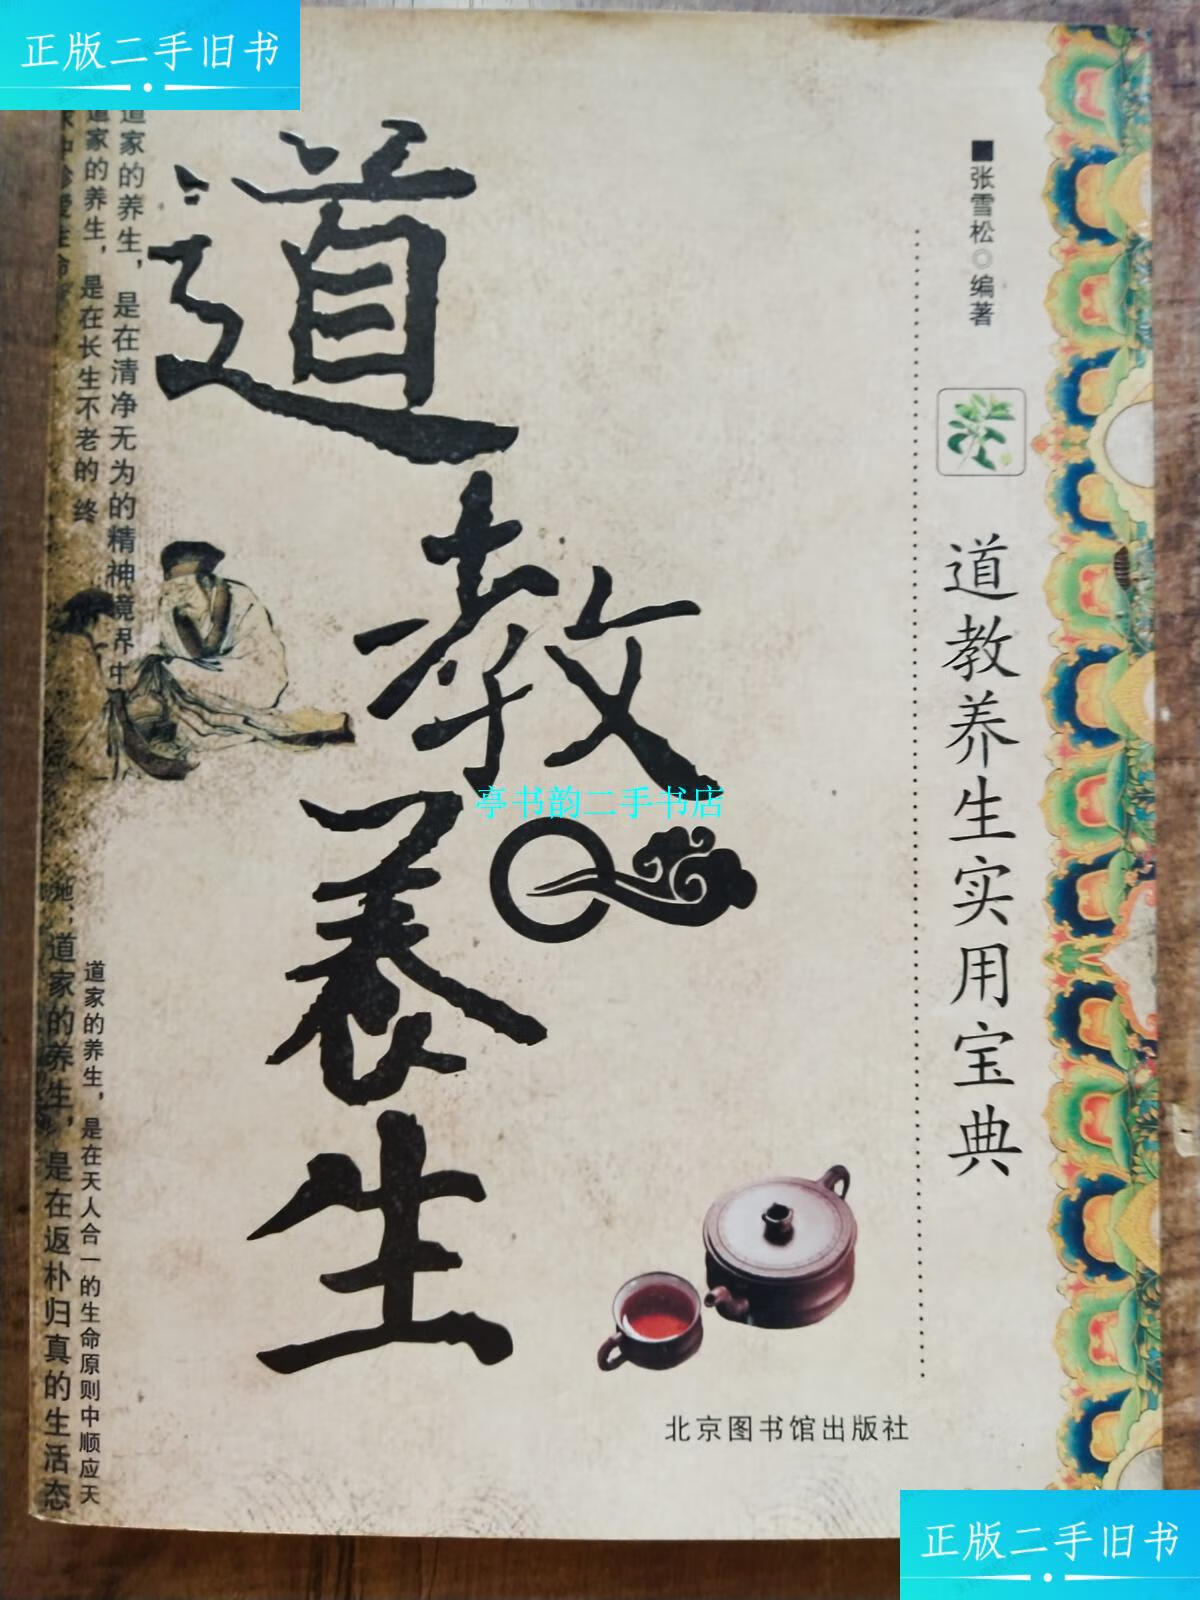 正版二手旧书
道家的养生，是在清净无为的精神境界中
道家的养生，是在长生不老的 终
道教養生
张雪松◎编著
道教养生实用宝典
亭书韵二手书店
道家的养生，是在天人合一的生命原则中顺应天
地；道家的养生，是在返朴归真的生活态
北京图书馆出版社
正版二手旧书